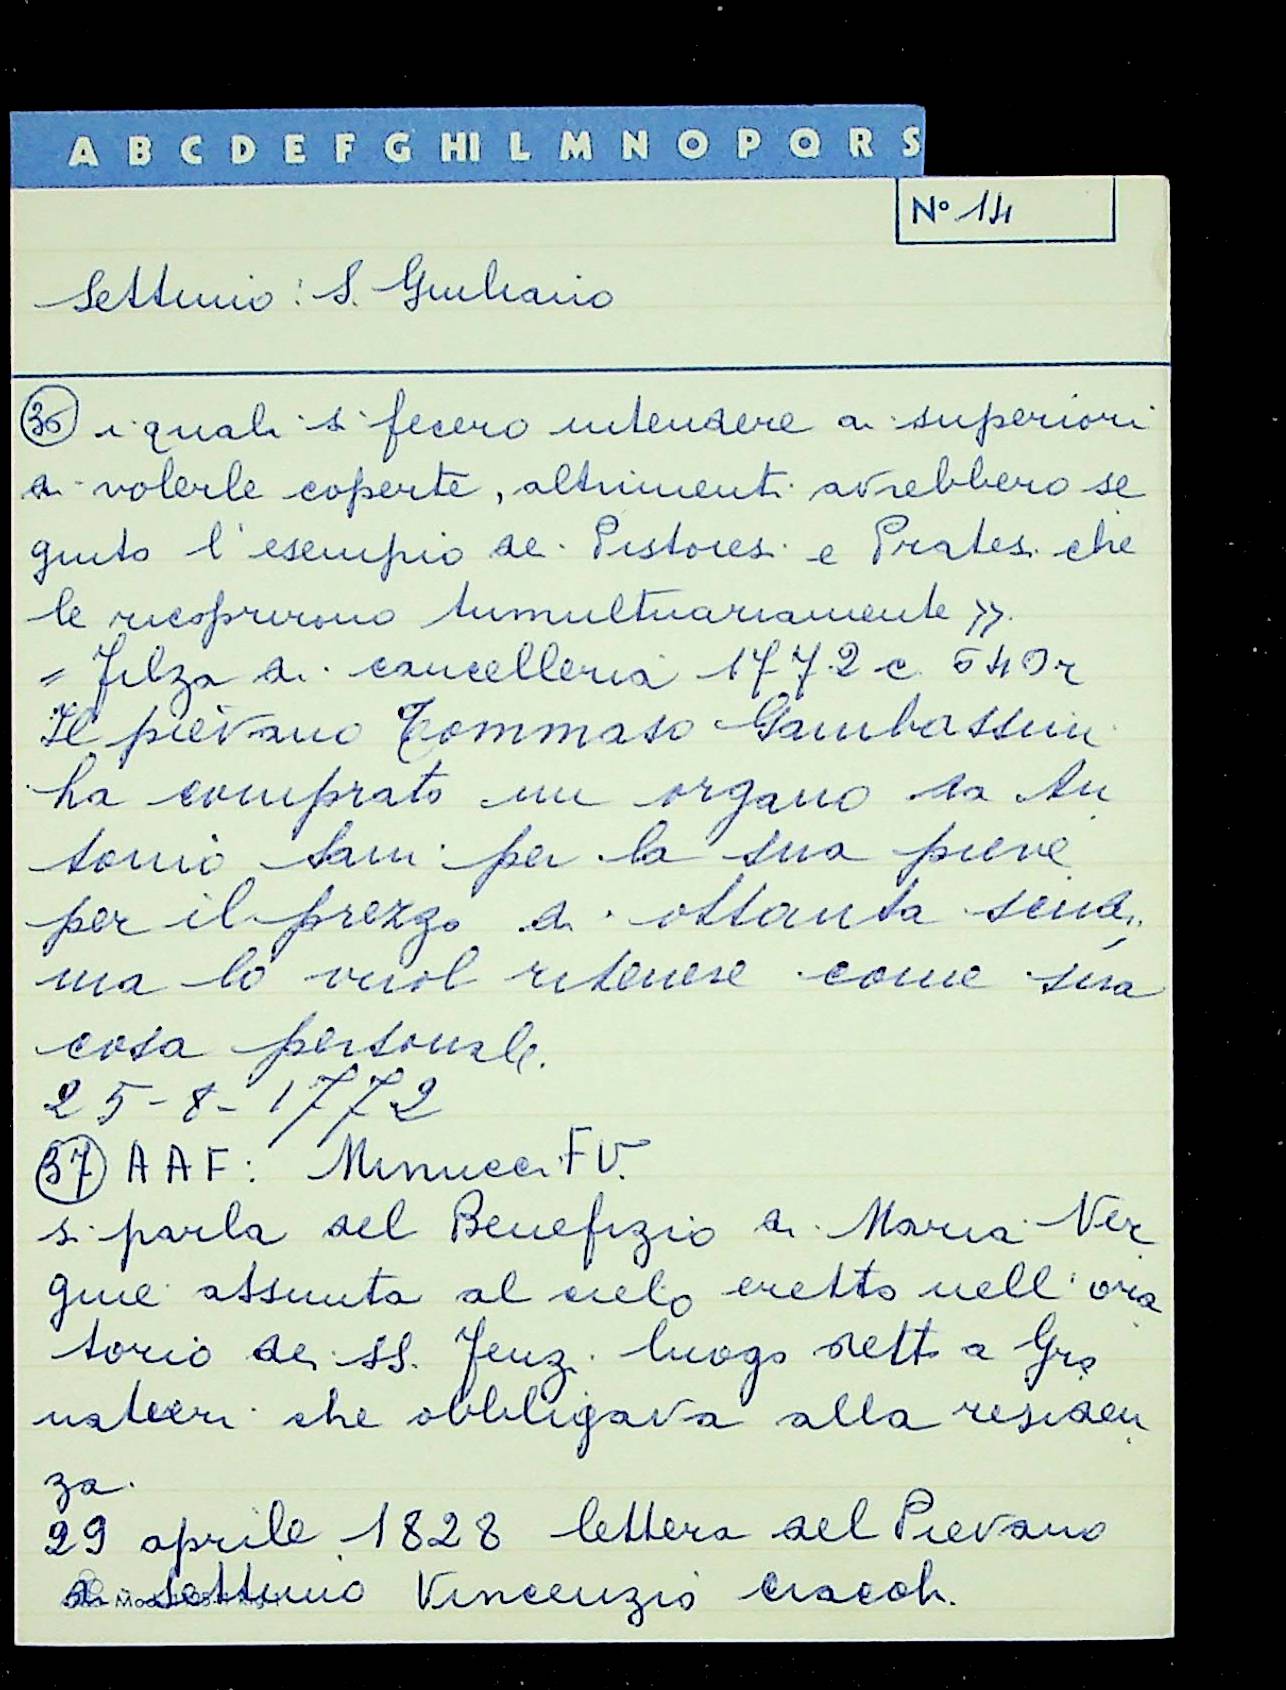 A B C D E F G HI L M N O P Q R S
N° 14
Settimo: S. Giuliano
36 i quali si fecero intendere ai superiori
di volerle coperte, altrimenti avrebbero se
guito l'esempio dei Pistoiesi e Pratesi che
le ricoprirono tumultuariamente».
= Filza di cancelleria 1772 c. 540r
Il pievano Tommaso Gambassini
ha comprato un organo da An
tonio Sani per la sua pieve
per il prezzo di ottanta scudi,
ma lo vuol ritenere come sua
cosa personale.
25-8-1772
37 AAF: Minucci FV.
si parla del Benefizio di Maria Ver
gine assunta al cielo eretto nell'ora
torio dei SS. luogo detto a
che obbligava alla residen
za.
29 aprile 1828 lettera del Pievano
di Settimo Vincenzio